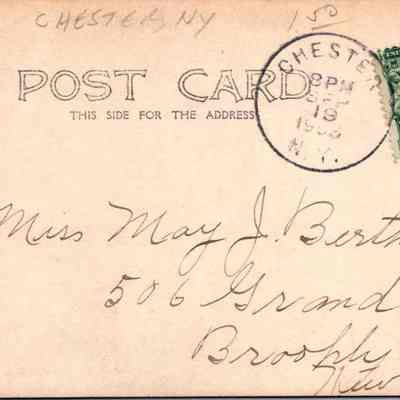 CHESTER, NY 1 50
POST CARD
THIS SIDE FOR THE ADDRESS
CHESTER
8 PM
SEP
19
N.Y.
Miss May J. Berth
506 Grand
Brookly
New